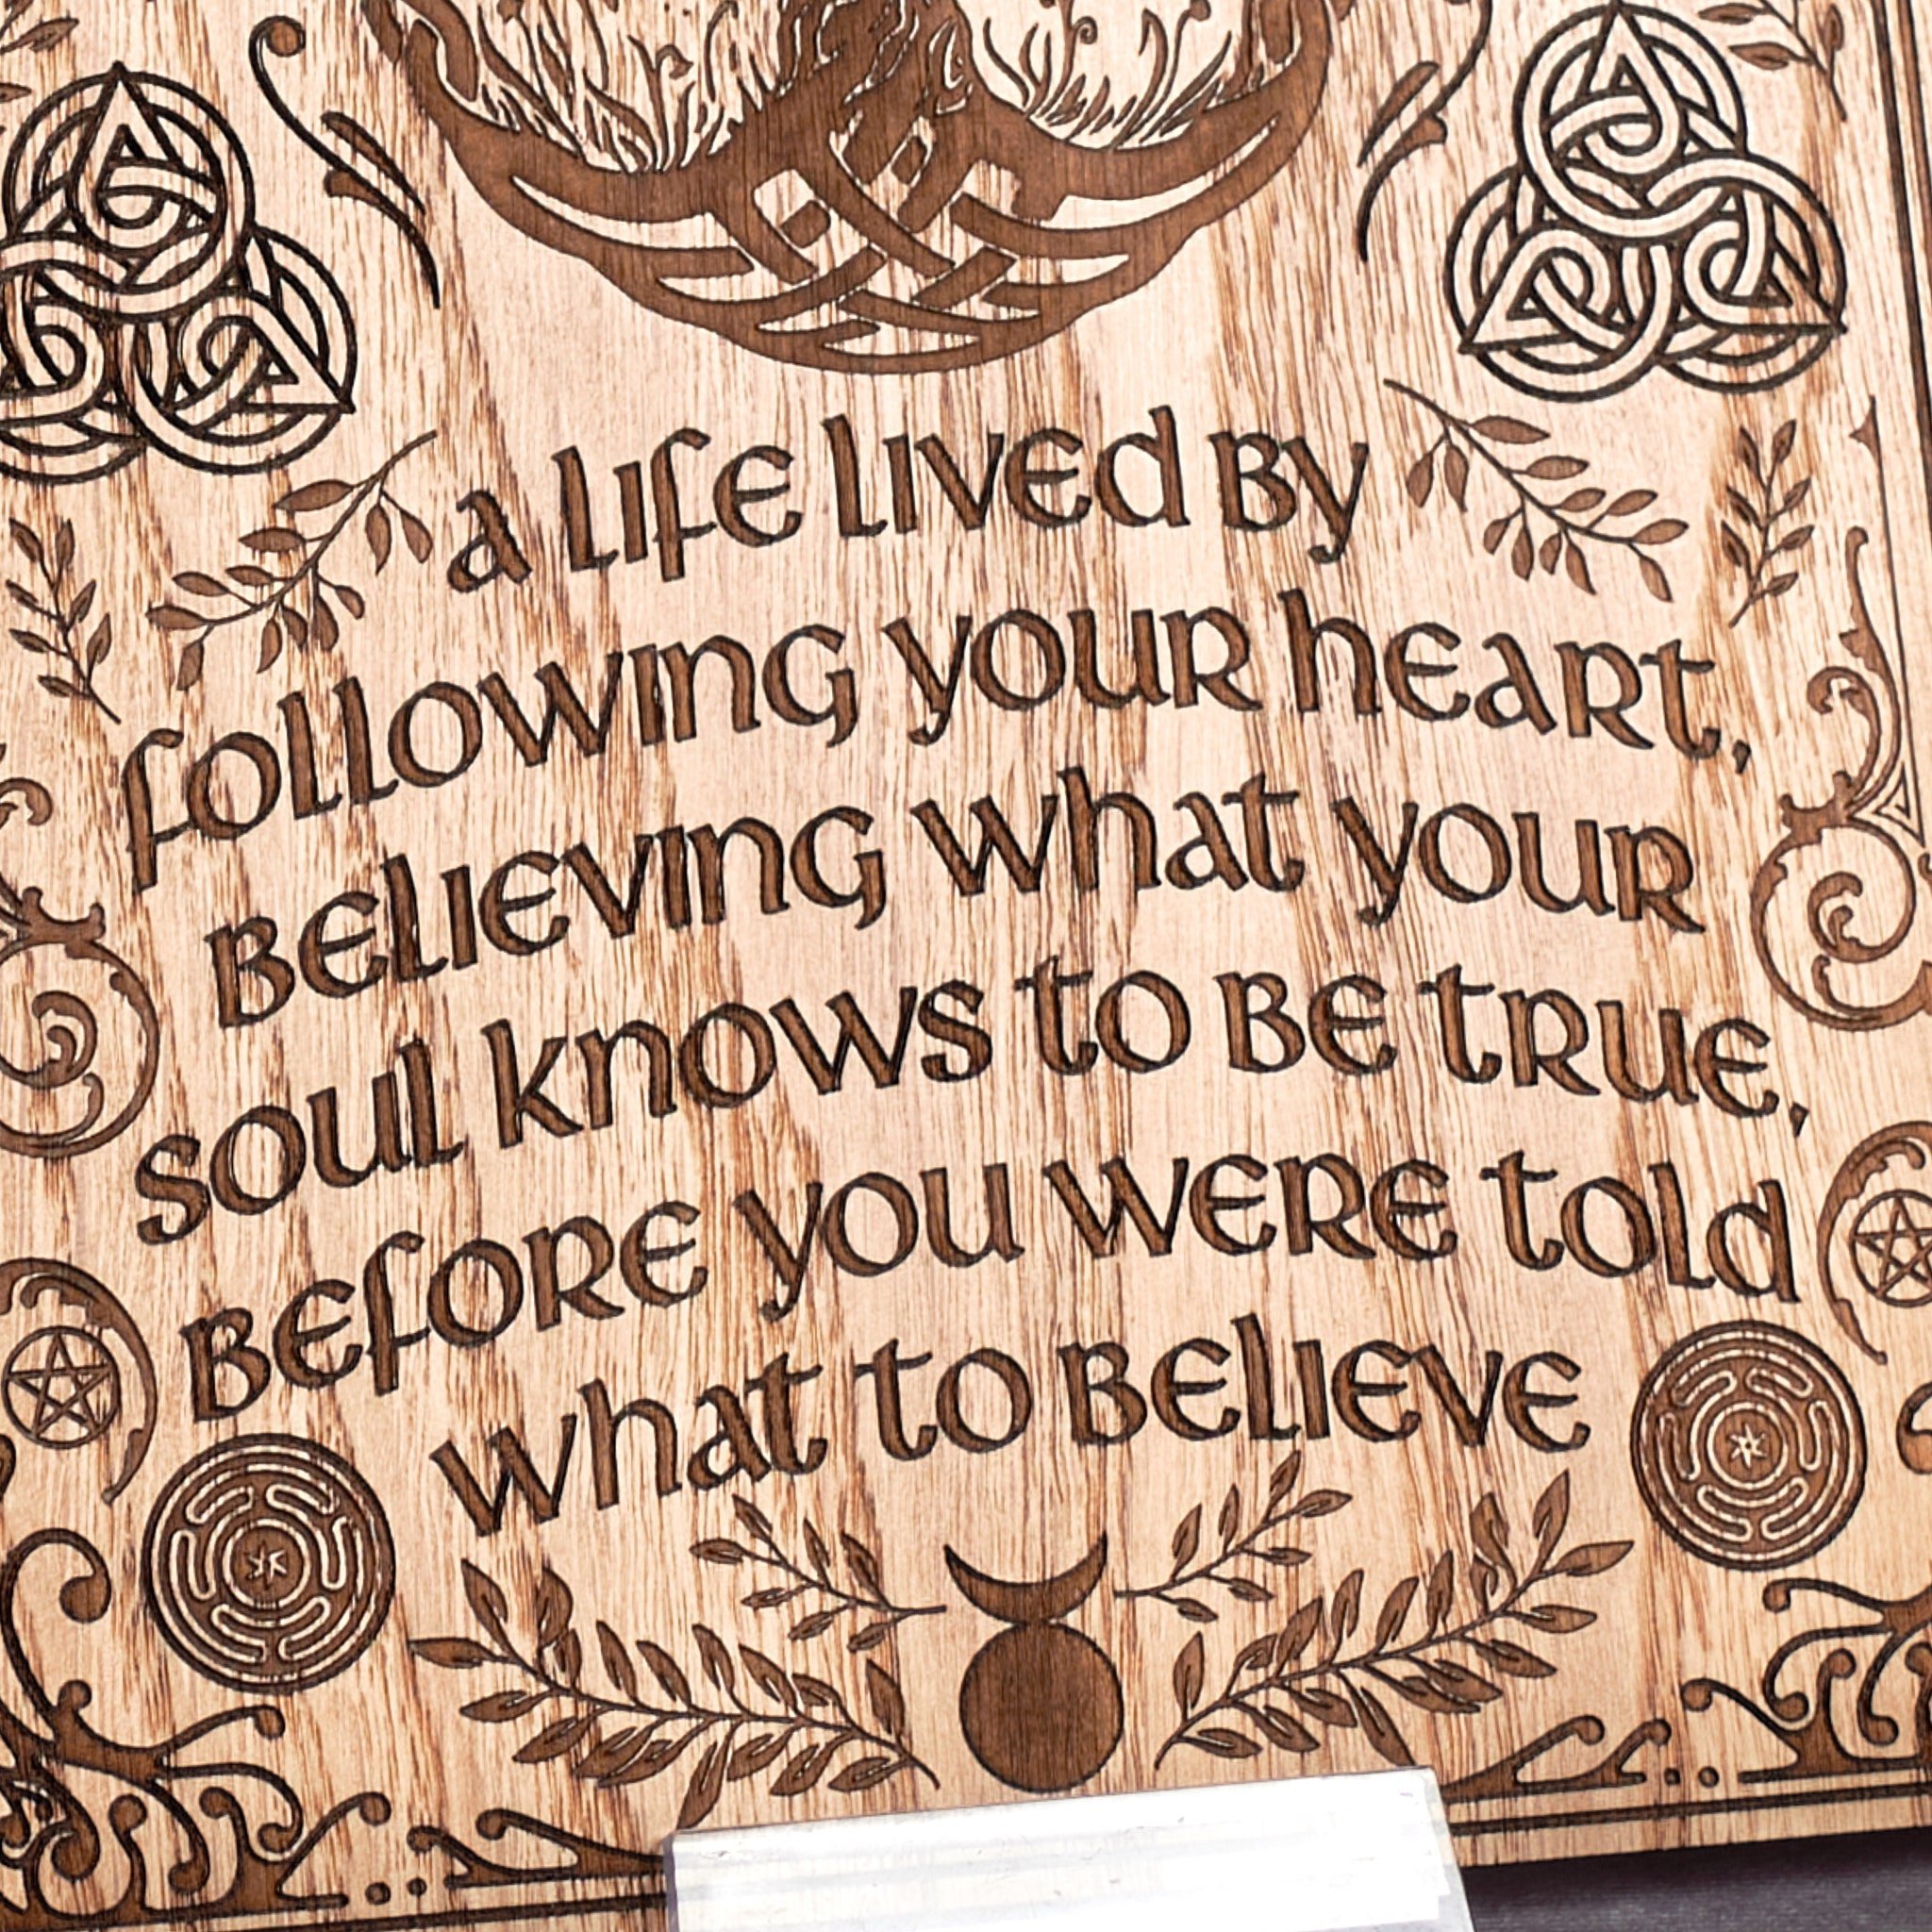 a life lived by
following your heart,
believing what your
soul knows to be true,
before you were told
what to believe